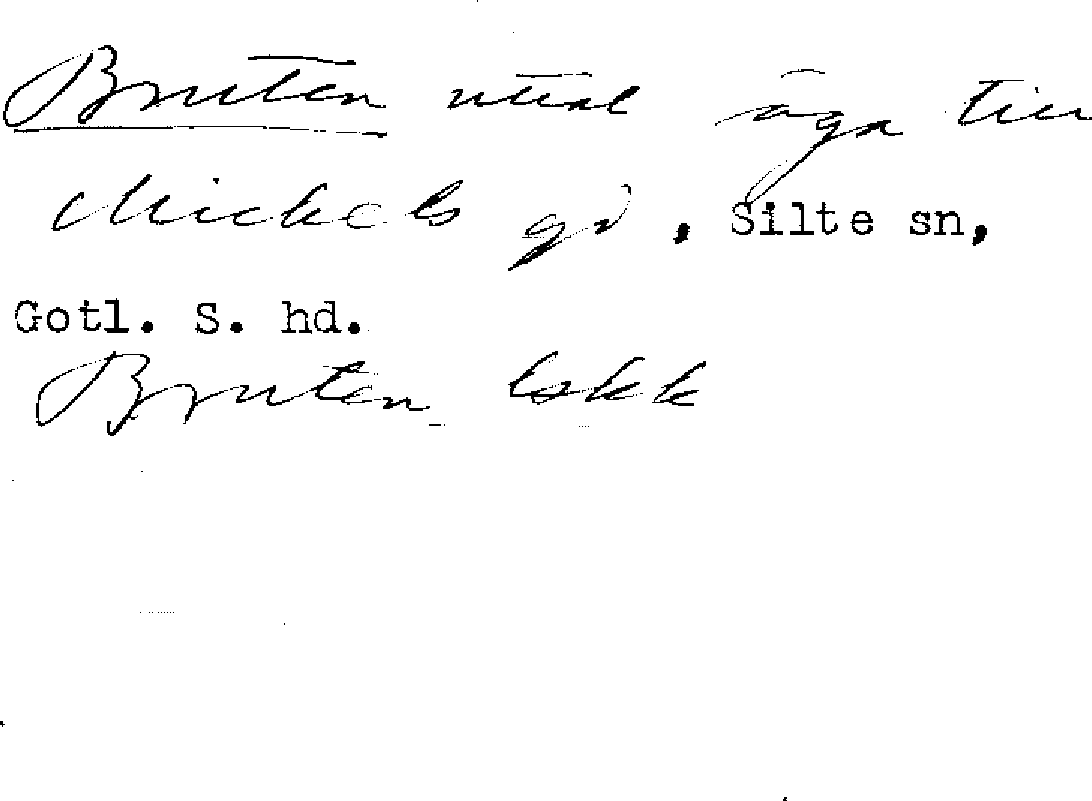 Bruten uttal äga till
Mickels gd, Silte sn,
Gotl. S. hd.
Bruten EskK